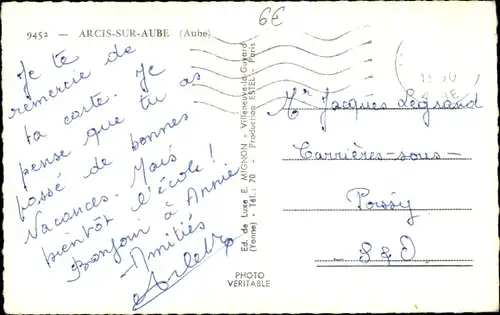 9452 — ARCIS-SUR-AUBE (Aube)
6€
Je te
remercie de
ta carte. Je
pense que tu as
passé de bonnes
Vacances. Mais
bientôt l'école !
Bonjour à Annie
Amitiés
Ed. de Luxe E. MIGNON - Villeneuve-la-Guyard
(Yonne) - Tél.: 70 - Production ESTEL - Paris
PHOTO
VERITABLE
Mr Jacques Legrand
Carrières-sous-
Poissy
S & O.